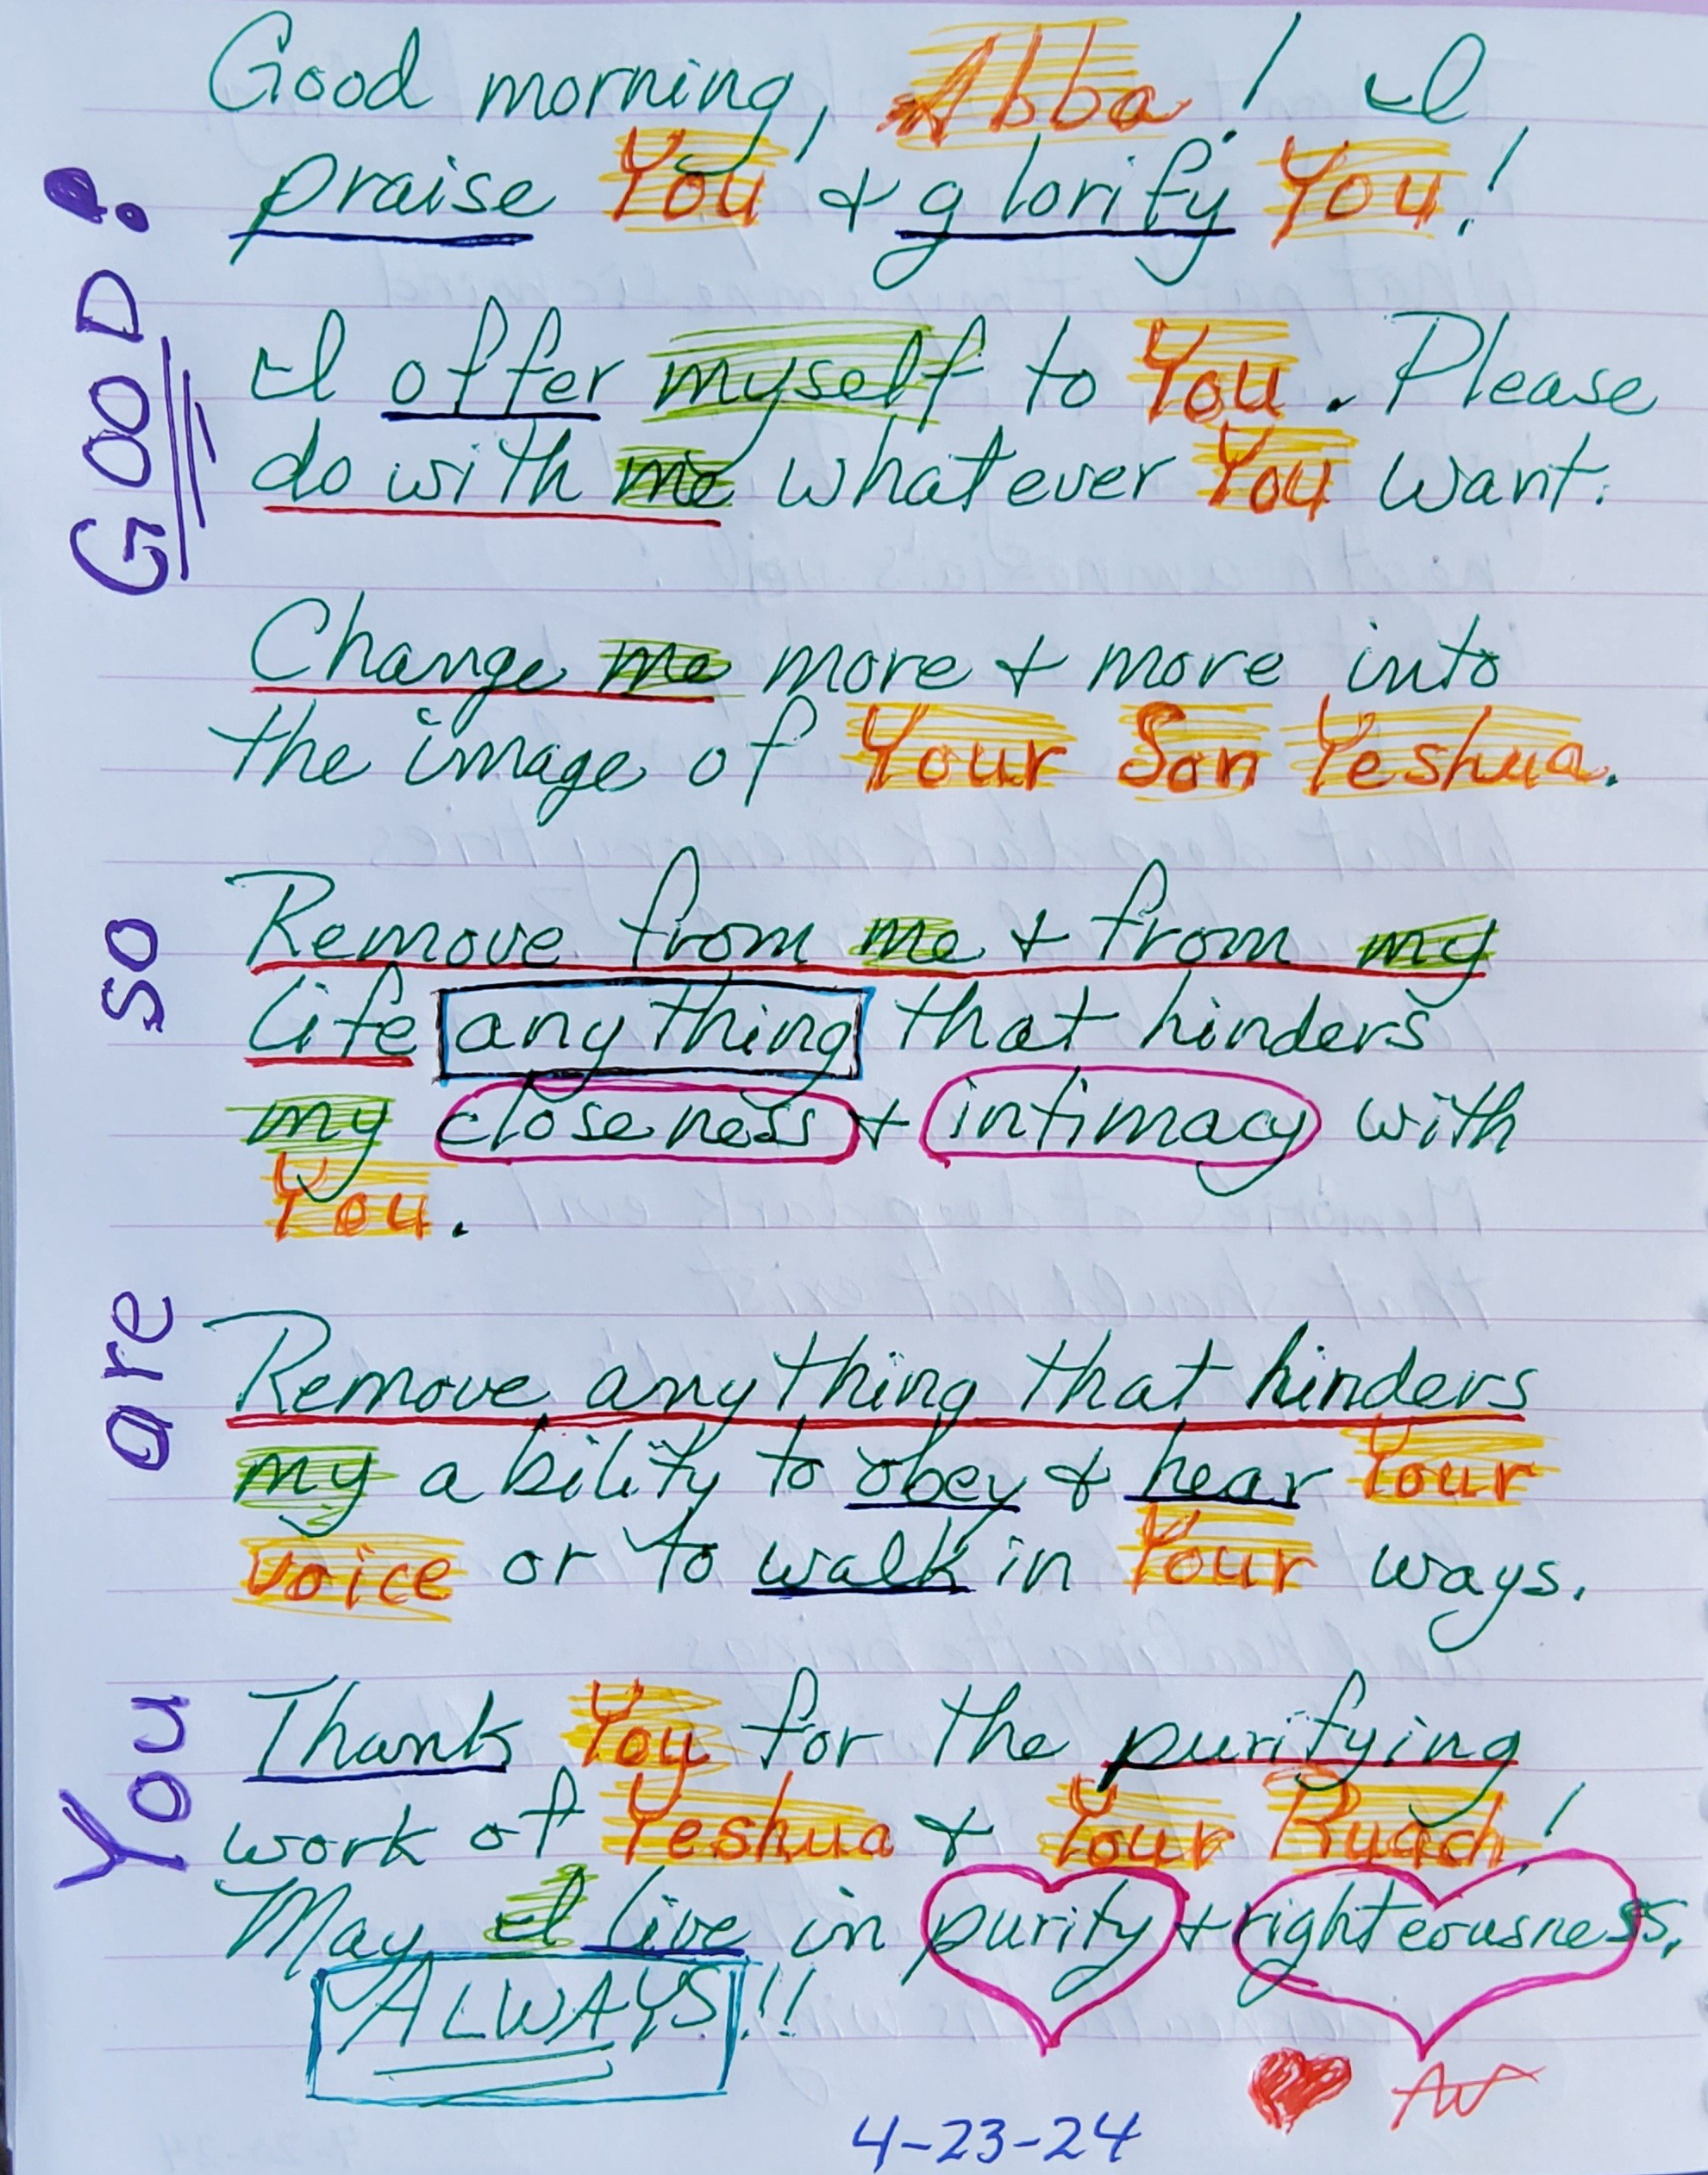 Good morning, Abba! I
praise You & glorify You!
I offer myself to You. Please
do with me whatever You want.
Change me more + more into
the image of Your Son Yeshua.
Remove from me + from my
life anything that hinders
my closeness + intimacy with
You.
Remove anything that hinders
my ability to obey & hear Your
voice or to walk in Your ways.
Thank You for the purifying
work of Yeshua + Your Ruach!
May I live in purity + righteousness,
ALWAYS!!
AW
4-23-24
You are so GOOD!